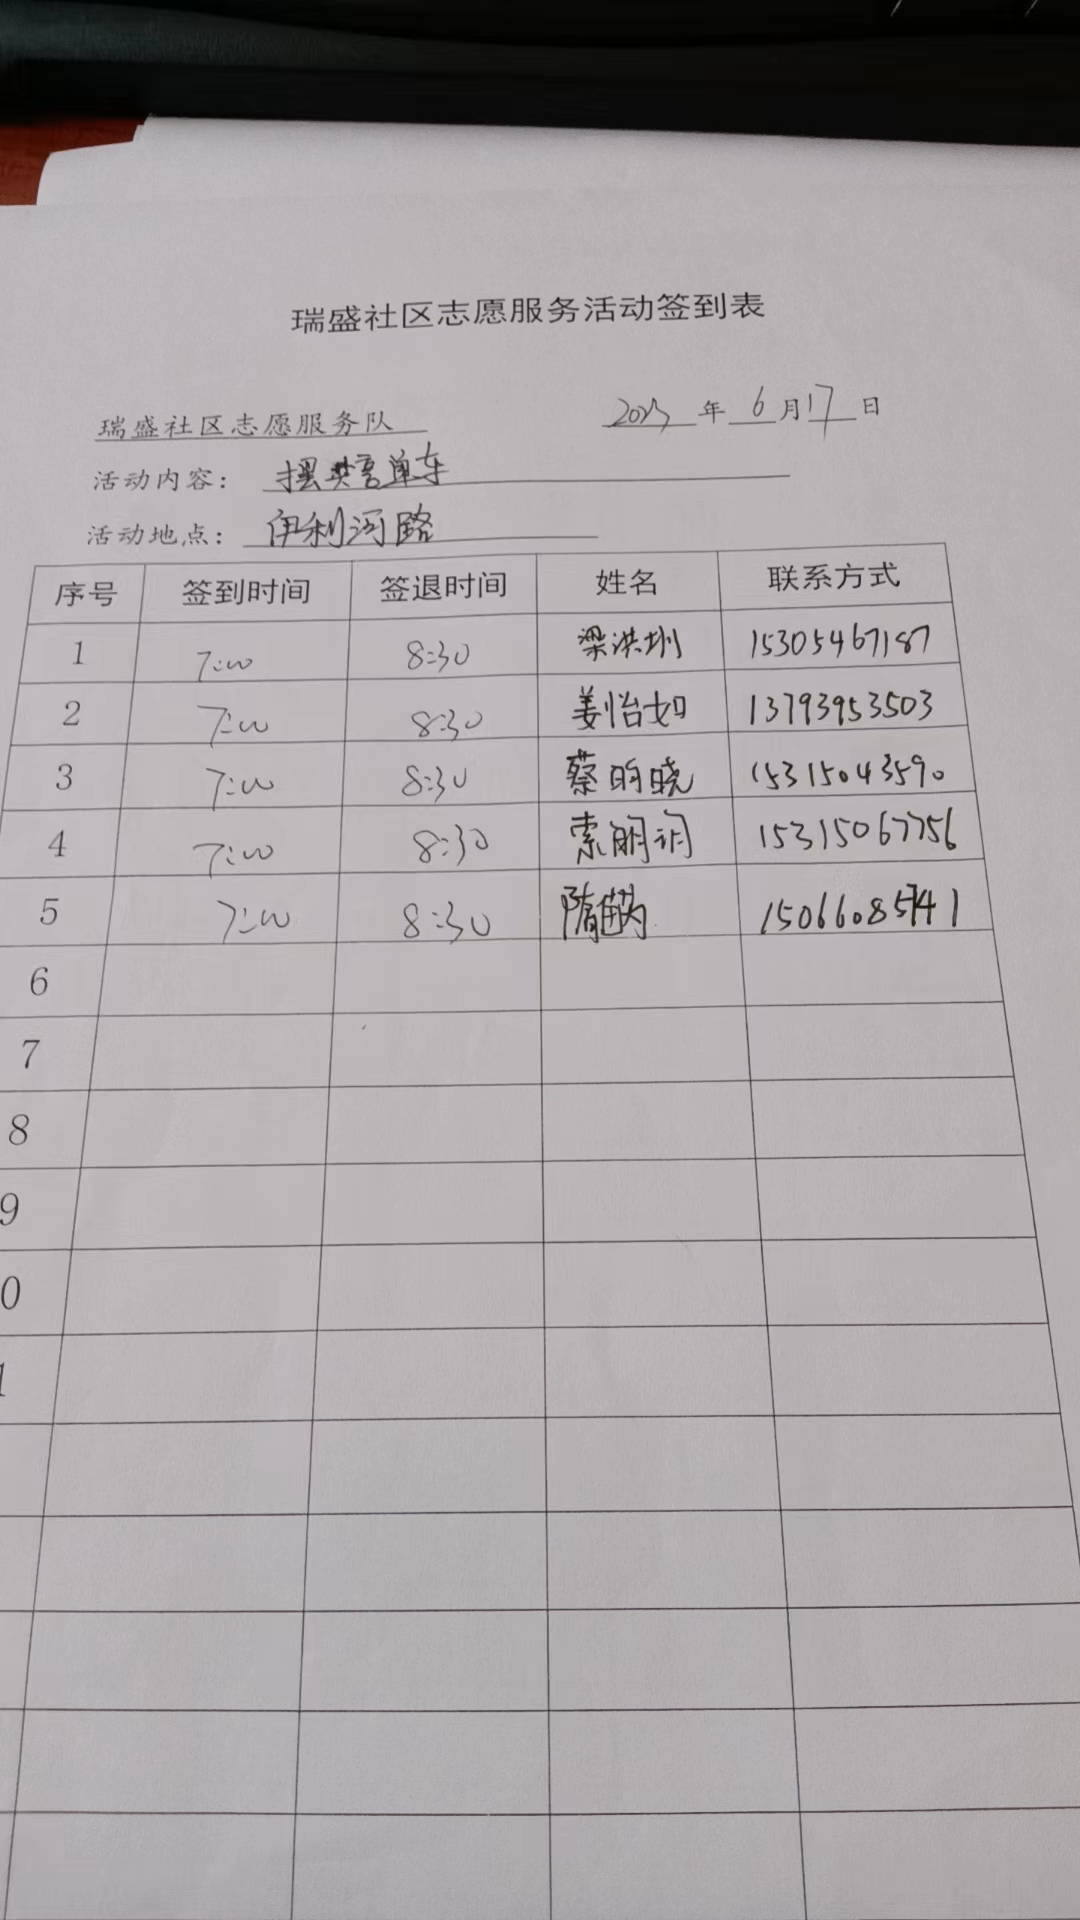 瑞盛社区志愿服务活动签到表
瑞盛社区志愿服务队 2023 年 6 月 17 日
活动内容： 摆共享单车
活动地点： 伊利河路
序号 签到时间 签退时间 姓名 联系方式
1 7:00 8:30 梁洪圳 15305467187
2 7:00 8:30 姜怡如 13793953503
3 7:00 8:30 蔡昀晓 15315043590
4 7:00 8:30 索明润 15315067756
5 7:00 8:30 隋 15066085741
6
7
8
9
0
1